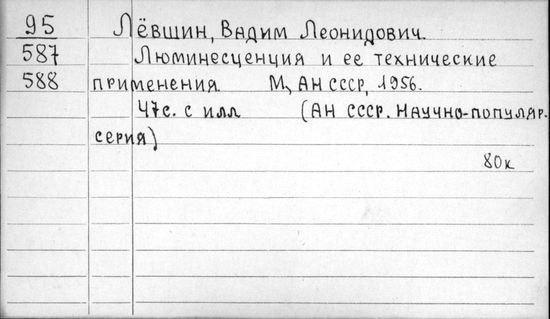 95 Лёвшин, Вадим Леонидович.
587 Люминесценция и ее технические
588 применения. М, АН СССР, 1956.
47с. с илл (АН СССР. Научно-популяр.
серия)
80к